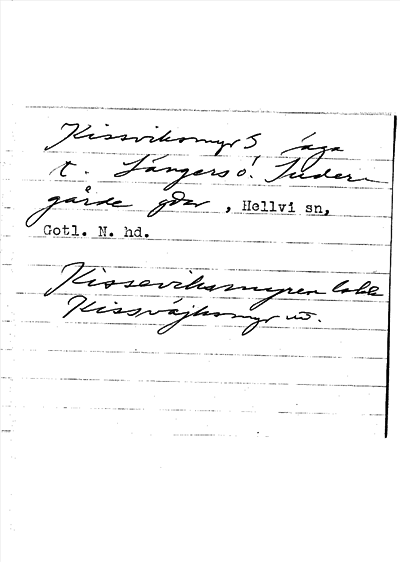 Kissviksmyr S äga
t. Längers o. Suder
gårde gdr, Hellvi sn,
Gotl. N. hd.
Kissevikasmyren
Kissväjksmyr